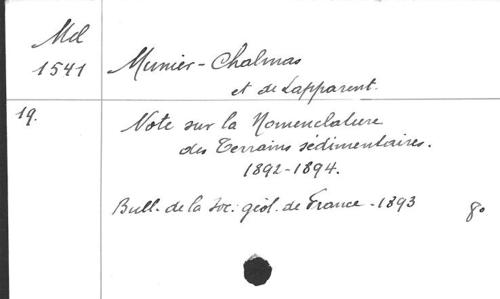 Mel
1541
Munier-Chalmas
et de Lapparent.
19.
Note sur la Nomenclature
des Terrains sédimentaires.
1892-1894.
Bull. de la Soc. géol. de France - 1893
8o